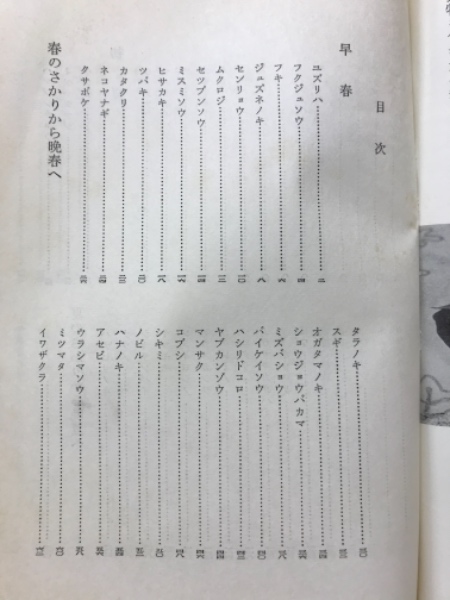 目次
早春
ユズリハ……二
フクジュソウ……四
フキ……六
ジュズネノキ……八
センリョウ……一〇
ムクロジ……一二
セツブンソウ……一四
ミスミソウ……一六
ヒサカキ……一八
ツバキ……二〇
カタクリ……二二
ネコヤナギ……二四
クサボケ……二六
春のさかりから晩春へ
タラノキ……三〇
スギ……三二
オガタマノキ……三四
ショウジョウバカマ……三六
ミズバショウ……三八
バイケイソウ……四〇
ハシリドコロ……四二
ヤブカンゾウ……四四
マンサク……四六
コブシ……四八
シキミ……五〇
ノビル……五二
ハナノキ……五四
アセビ……五六
ウラシマソウ……五八
ミツマタ……六〇
イワザクラ……六二